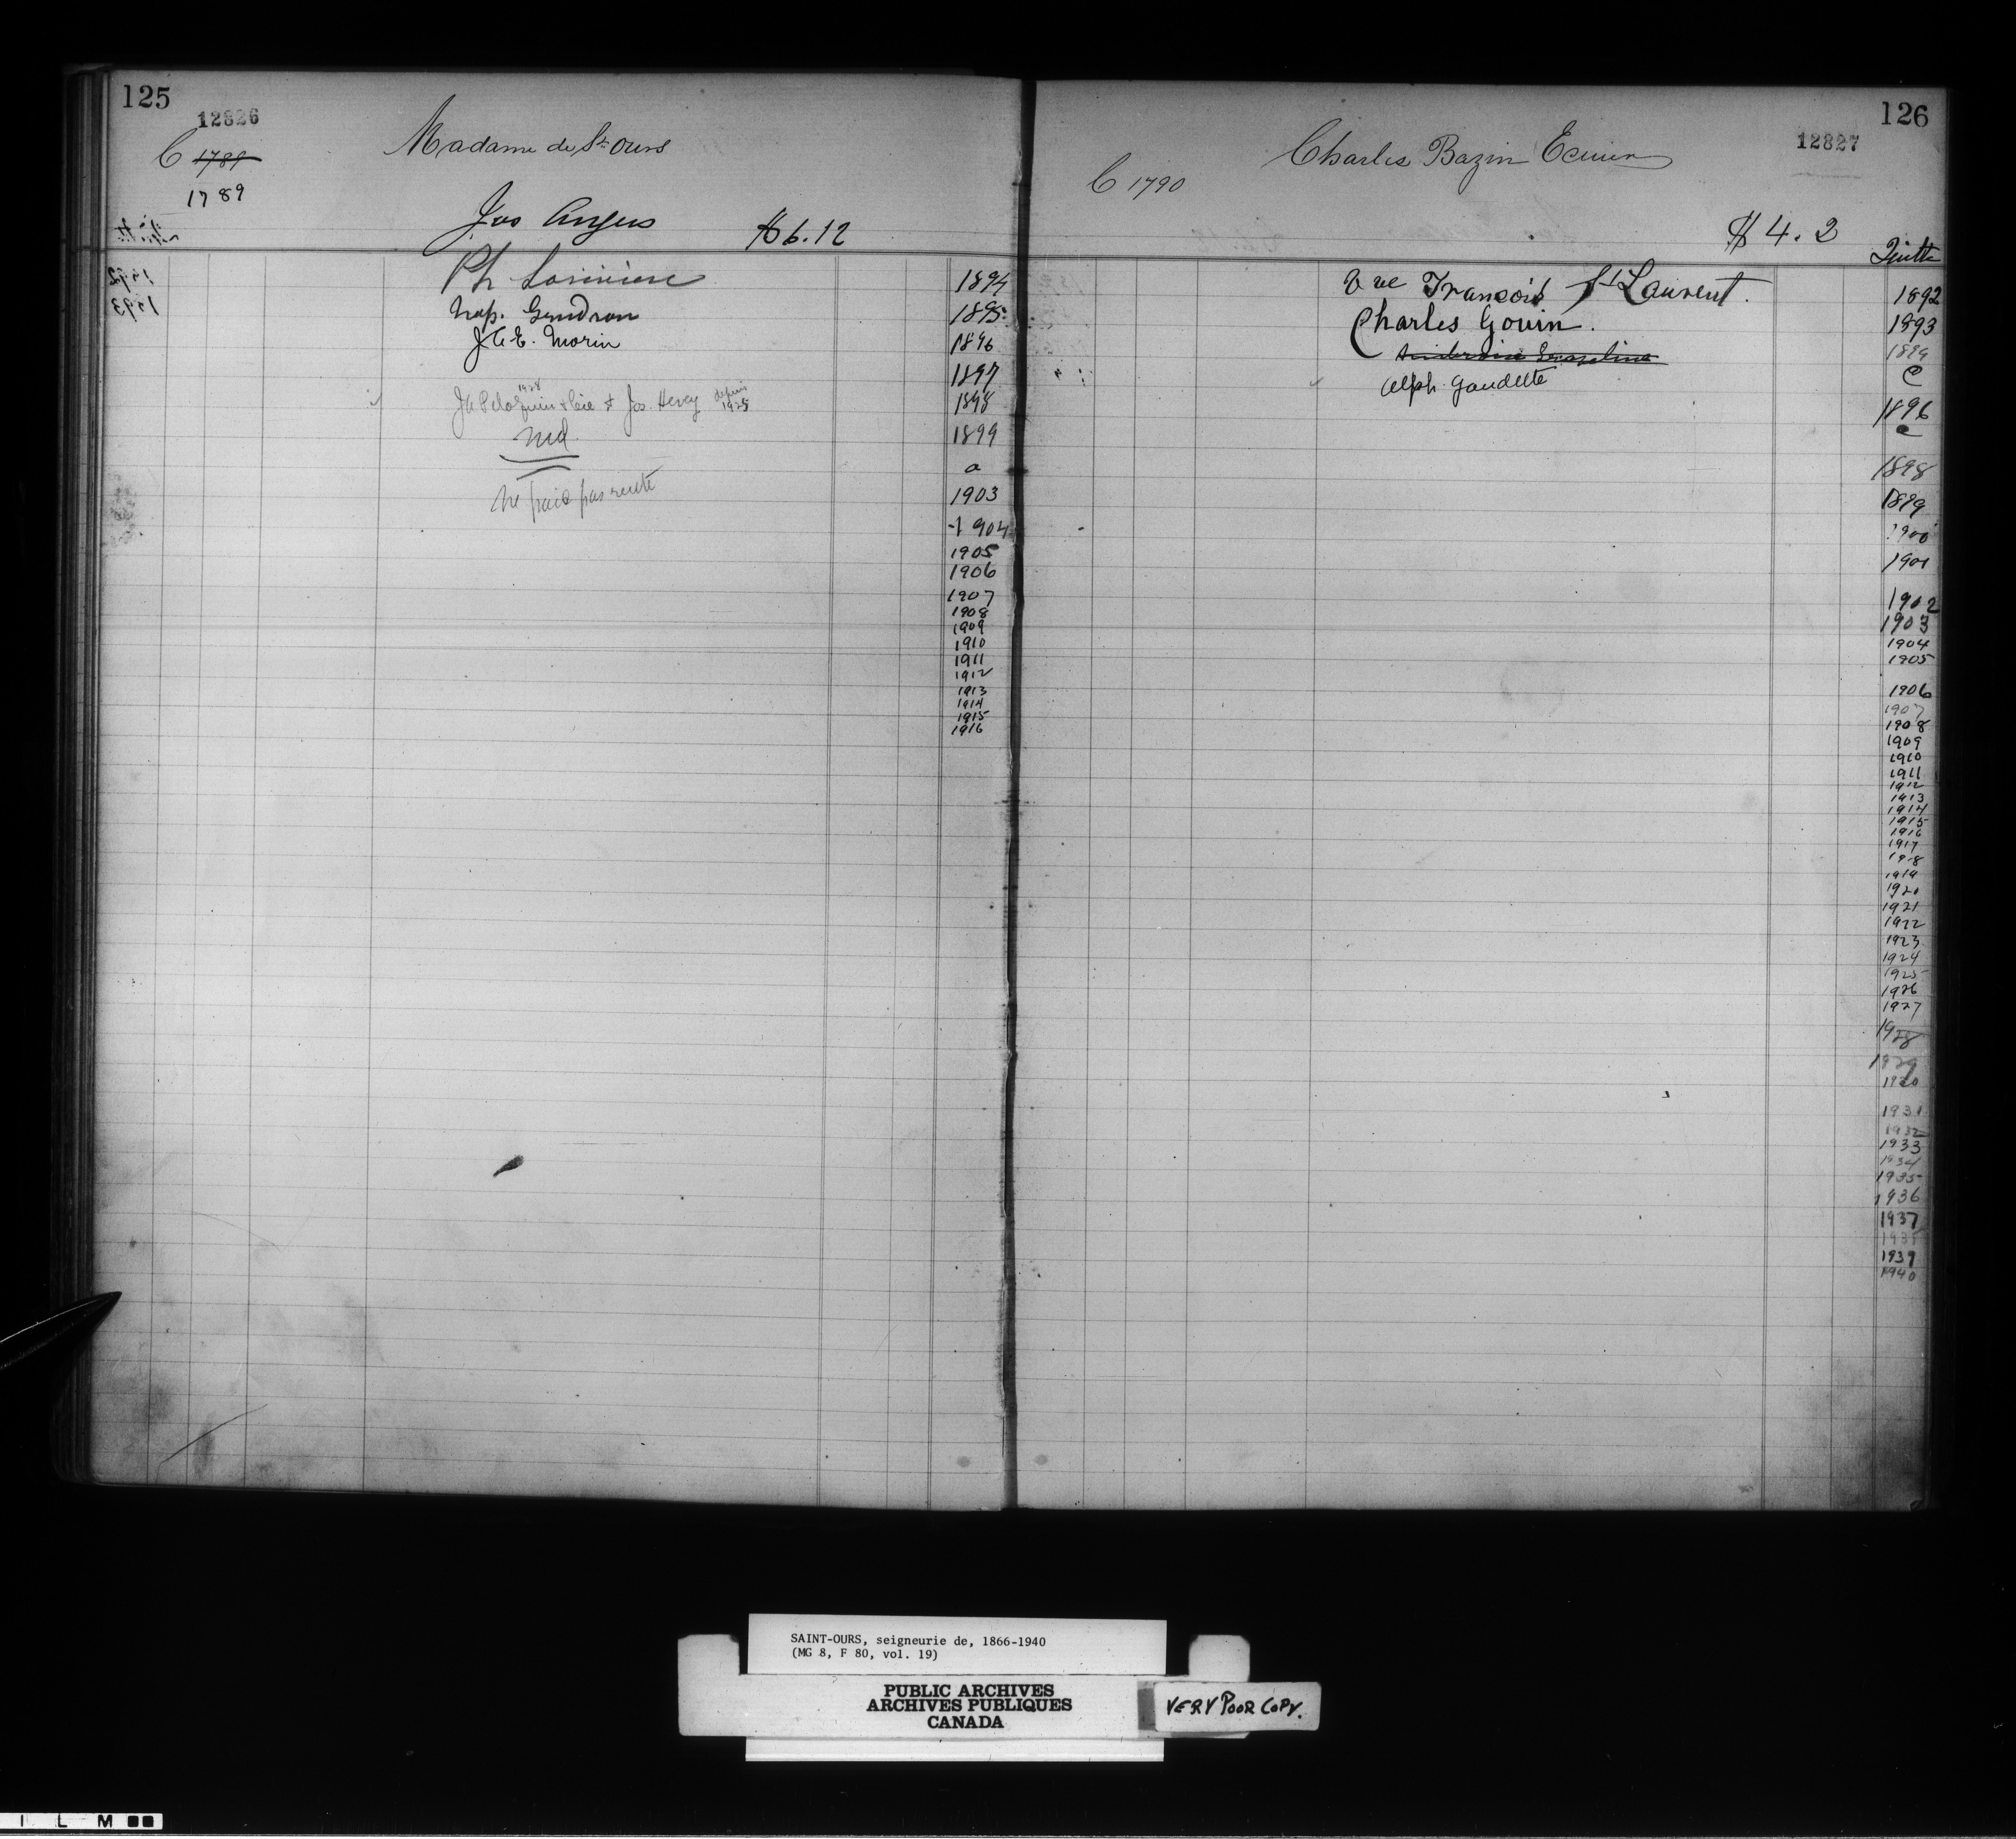 125
12826
C 1789
1789
Madame de St Ours
Jos Angers $6.12
Ph Larivière 1894
Nap. Gendron 1895
J. A. E. Morin 1896
1897
1928
& Cie & Jos. Hevey depuis 1925
1898
nul 1899
a
ne paie pas rente
1903
1904
1905
1906
1907
1908
1909
1910
1911
1912
1913
1914
1915
1916
126
12827
Charles Bazin Ecuier
C 1790
$4.2
Quitte
Vve François St Laurent. 1892
Charles Gouin. 1893
1894
Alph. Gaudette
C
1896
c
1898
1899
1900
1901
1902
1903
1904
1905
1906
1907
1908
1909
1910
1911
1912
1913
1914
1915
1916
1917
1918
1919
1920
1921
1922
1923
1924
1925
1926
1927
1928
1929
1930
1931
1932
1933
1934
1935
1936
1937
1938
1939
1940
SAINT-OURS, seigneurie de, 1866-1940
(MG 8, F 80, vol. 19)
PUBLIC ARCHIVES
ARCHIVES PUBLIQUES
CANADA
VERY POOR COPY.
I L M